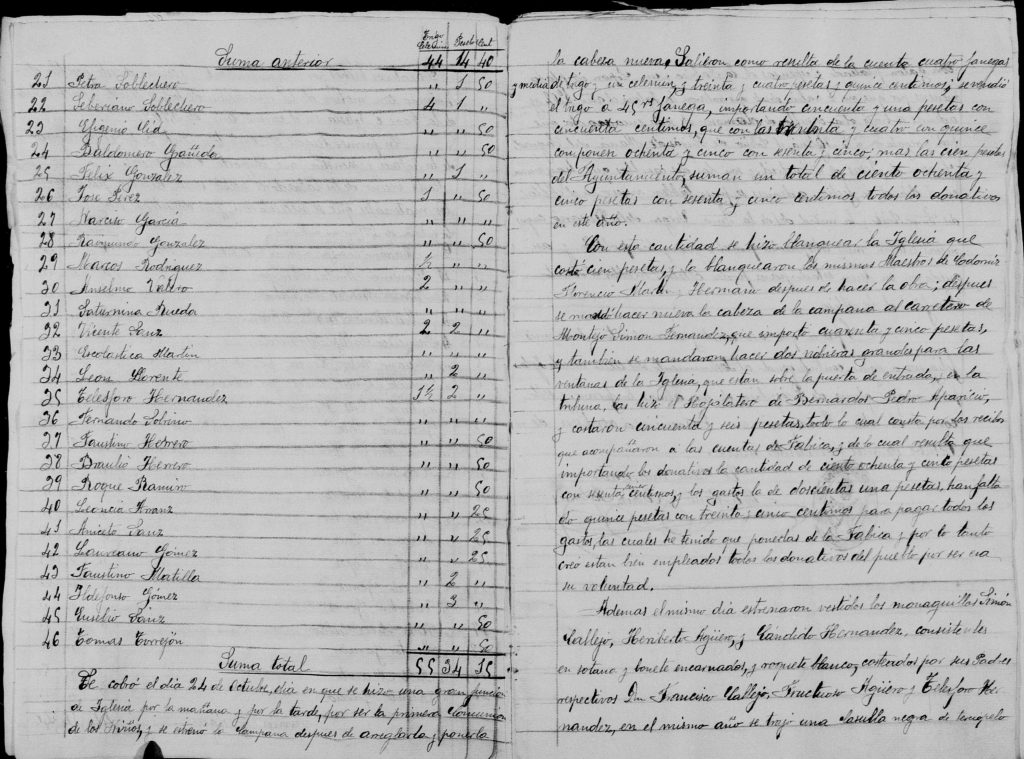 Trigo Celemines Pesetas Cent
Suma anterior 44 14 40
21 Petra Soblechero " 1 50
22 Seberiano Soblechero 4 1 "
23 Higenio Cid " " 50
24 Baldomero Grañeda " " 50
25 Felix Gonzalez " 1 "
26 Jose Perez 1 " 50
27 Narciso Garcia " " "
28 Raimundo Gonzalez " " 50
29 Marcos Rodriguez ½ " "
30 Anselmo Valero 2 " "
31 Saturnina Rueda " " "
32 Vicente Sanz 2 2 "
33 Escolastica Martin " " "
34 Leon Llorente " 2 "
35 Telesforo Hernandez 1½ 2 "
36 Fernando Sobrino " " "
37 Faustino Herrero " " 50
38 Braulio Herrero " " 50
39 Roque Ramiro " " 50
40 Leoncia Arranz " " 25
41 Aniceto Sanz " " 25
42 Laureano Gómez " " 25
43 Faustino Matilla " 2 "
44 Ildefonso Gómez " 3 "
45 Eusebio Sanz " " 50
46 Tomas Torrejón " " 50
Suma total 55 34 15
Se cobró el dia 24 de Octubre, dia en que se hizo una gran funcion
de Iglesia por la mañana y por la tarde, por ser la primera Comunion
de los Niños, y se estrenó la Campana despues de arreglarla y ponerla
la cabeza nueva. Salieron como resulta de la cuenta cuatro fanegas
y media de trigo y un celemin, y treinta y cuatro pesetas y quince centimos; se vendió
el trigo á 45 rs fanega, importando cincuenta y una pesetas con
cincuenta centimos, que con las treinta y cuatro con quince
componen ochenta y cinco con sesenta y cinco; mas las cien pesetas
del Ayuntamiento, suman un total de ciento ochenta y
cinco pesetas con sesenta y cinco centimos, todos los donativos
en este año.
Con esta cantidad se hizo blanquear la Iglesia que
costó cien pesetas, y la blanquearon los mismos Maestros de Codorniz
Florencio Martin y Hermano despues de hacer la obra; despues
se mandó hacer nueva la cabeza de la campana al carretero de
Montejo Simon Fernandez, que importó cuarenta y cinco pesetas,
y tambien se mandaron hacer dos vidrieras grandes para las
ventanas de la Iglesia, que estan sobre la puerta de entrada, y en la
tribuna, las hizo el Hojalatero de Bernardos Pedro Aparicio,
y costaron cincuenta y seis pesetas, todo lo cual consta por los recibos
que acompañaron a las cuentas de Fabica, y de lo cual resulta que
importando los donativos la cantidad de ciento ochenta y cinco pesetas
con sesenta y cinco centimos, y los gastos la de doscientas una pesetas, han falta
do quince pesetas con treinta y cinco centimos para pagar todos los
gastos, las cuales he tenido que ponerlas de la Fabica y por lo tanto
creo estan bien empleados todos los donativos del pueblo por ser esa
su voluntad.
Ademas el mismo dia estrenaron vestidos los monaguillos Simón
Callejo, Heriberto Agüero, y Cándido Hernandez, consistentes
en sotana y bonete encarnados, y roquete blanco, costeados por sus Padres
respectivos Dn Francisco Callejo, Fructuoso Agüero y Telesforo Her
nandez, en el mismo año se trajo una casulla negra de terciopelo